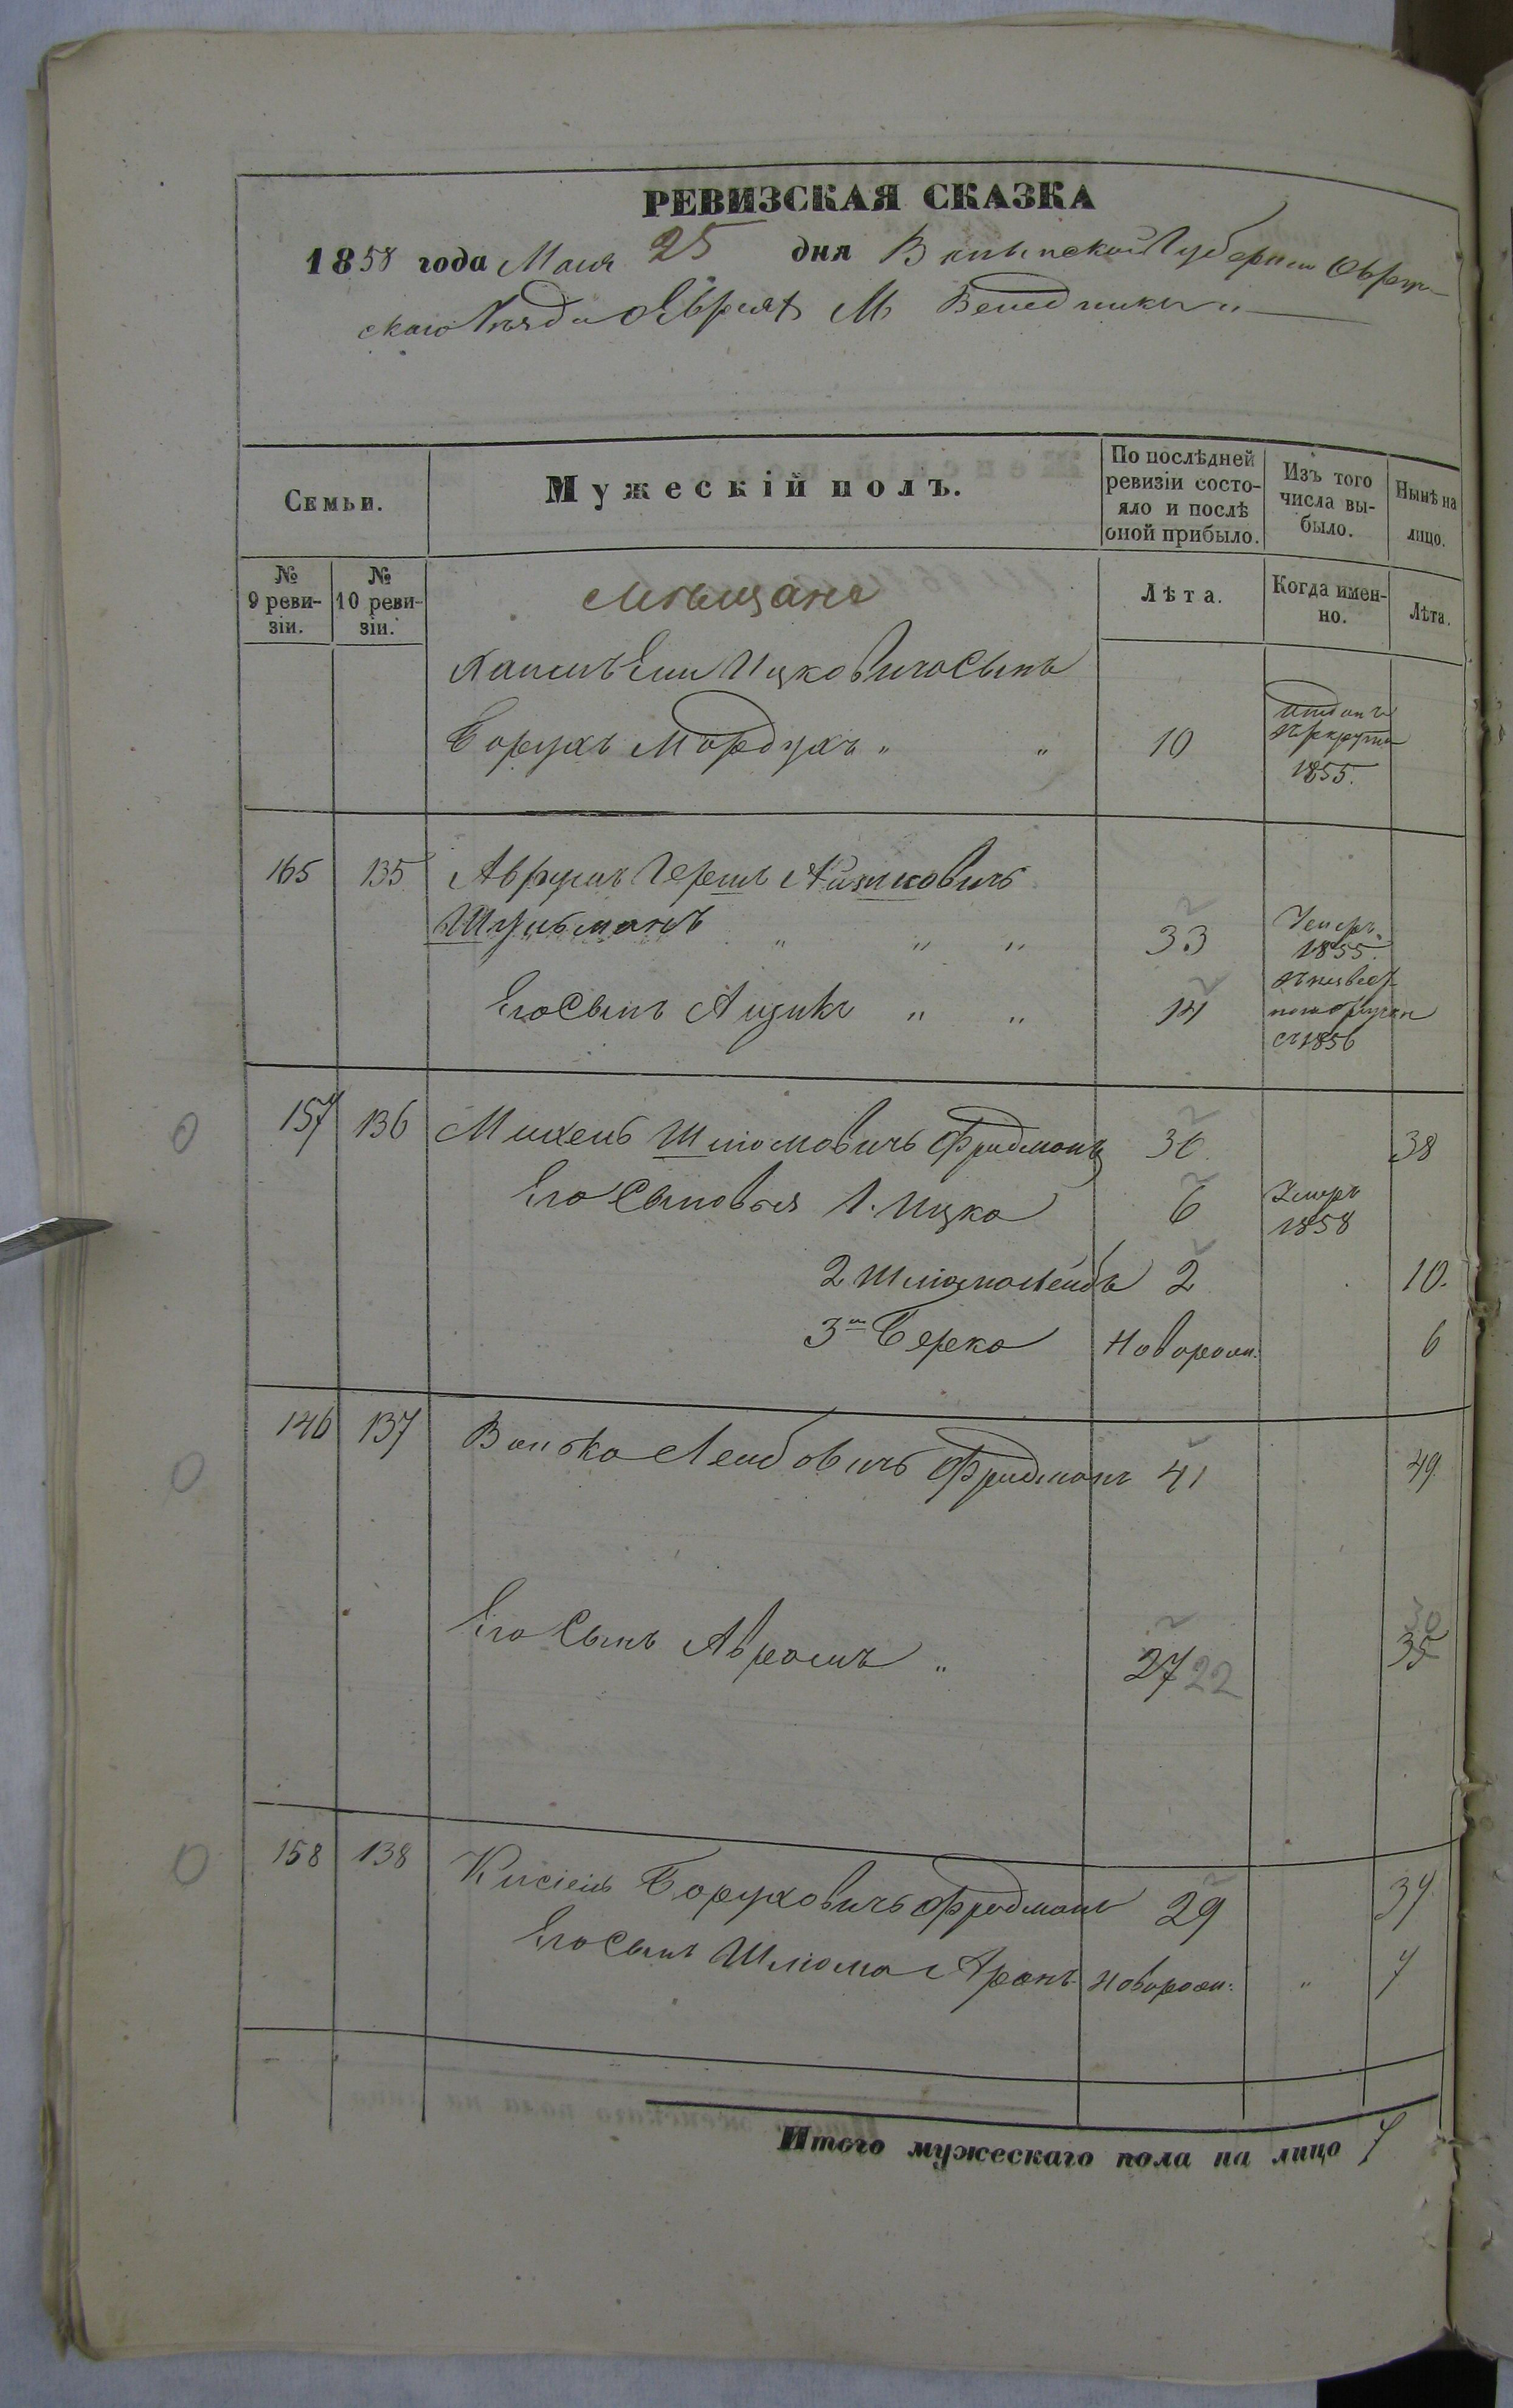 РЕВИЗСКАЯ СКАЗКА
1858 года Мая 25 дня Волынской Губернии Овруч-
скаго Уѣзда Евреяъ М Веледникъ
Семьи.
Мужескій полъ.
По послѣдней ревизіи состо-яло и послѣ оной прибыло.
Изъ того числа вы-было.
Нынѣ на лицо.
№ 9 реви-зіи.
№ 10 реви-зіи.
Мѣщане
Лѣта.
Когда имен-но.
Лѣта.
Ицковича Сынъ
Борухъ Мордухъ " " 10 отданъ въ рекруты 1855.
165 135 Аврумъ Гершъ
Шульманъ " " " 33 Умеръ 1855.
Его Сынъ Айзикъ " " 14 1856
157 136 Михель Шліомовичъ Фридманъ 30 38
Его Сыновья 1. Ицко 6 Умеръ 1858
2 Шліомо Лейбъ 2 10.
3й Берко Новорож: 6
146 137 Волько Лейбовичъ Фридманъ 41 49
Его Сынъ Аврамъ " 27 22 30 35
158 138 Кисіель Боруховичъ Фридманъ 29 37
Его Сынъ Шліома Аронъ Новорож: " 7
Итого мужескаго пола на лицо 7